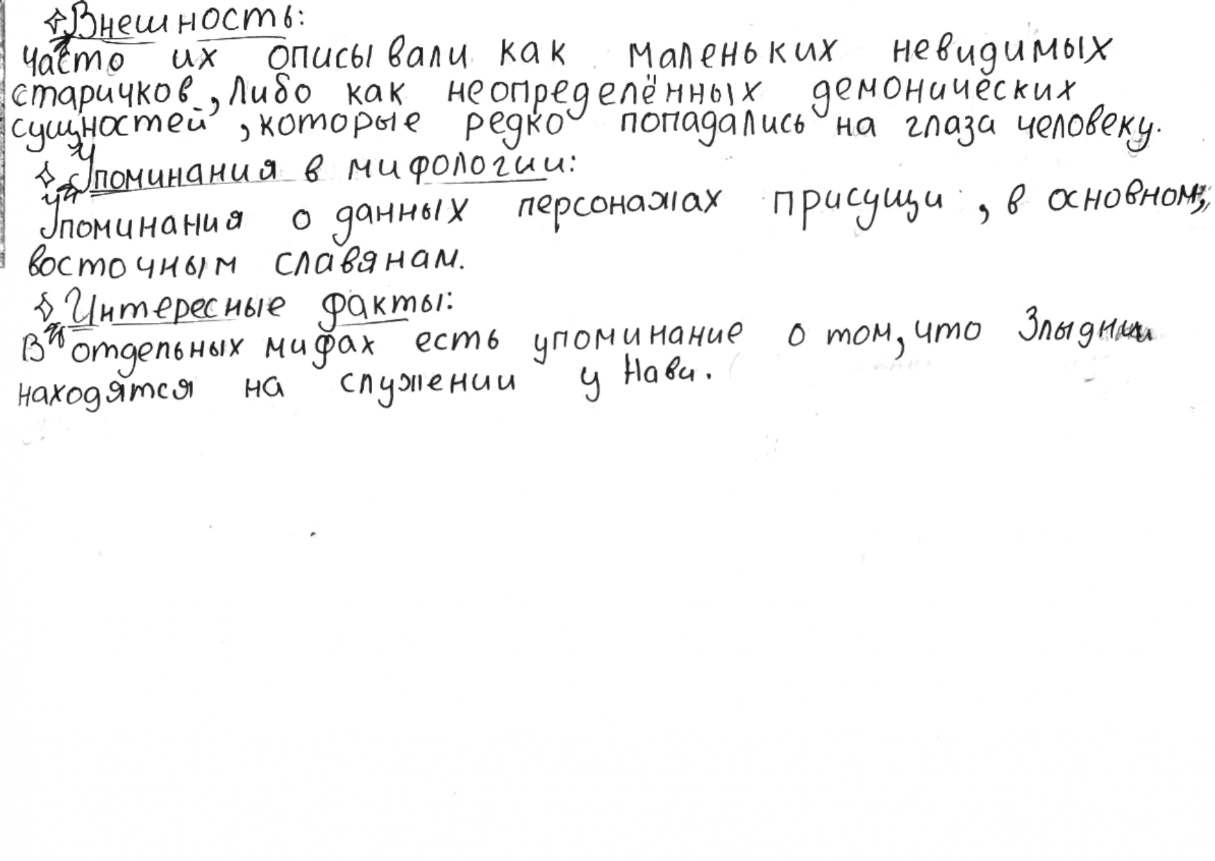 Внешность:
Часто их описывали как маленьких невидимых
старичков, либо как неопределённых демонических
сущностей, которые редко попадались на глаза человеку.
Упоминания в мифологии:
Упоминания о данных персонажах присущи, в основном,
восточным славянам.
Интересные факты:
В отдельных мифах есть упоминание о том, что Злыдни
находятся на служении у Нави.